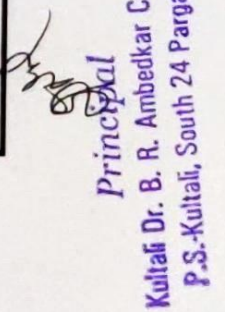 Principal
Kultali Dr. B. R. Ambedkar C
P.S.-Kultali, South 24 Parga